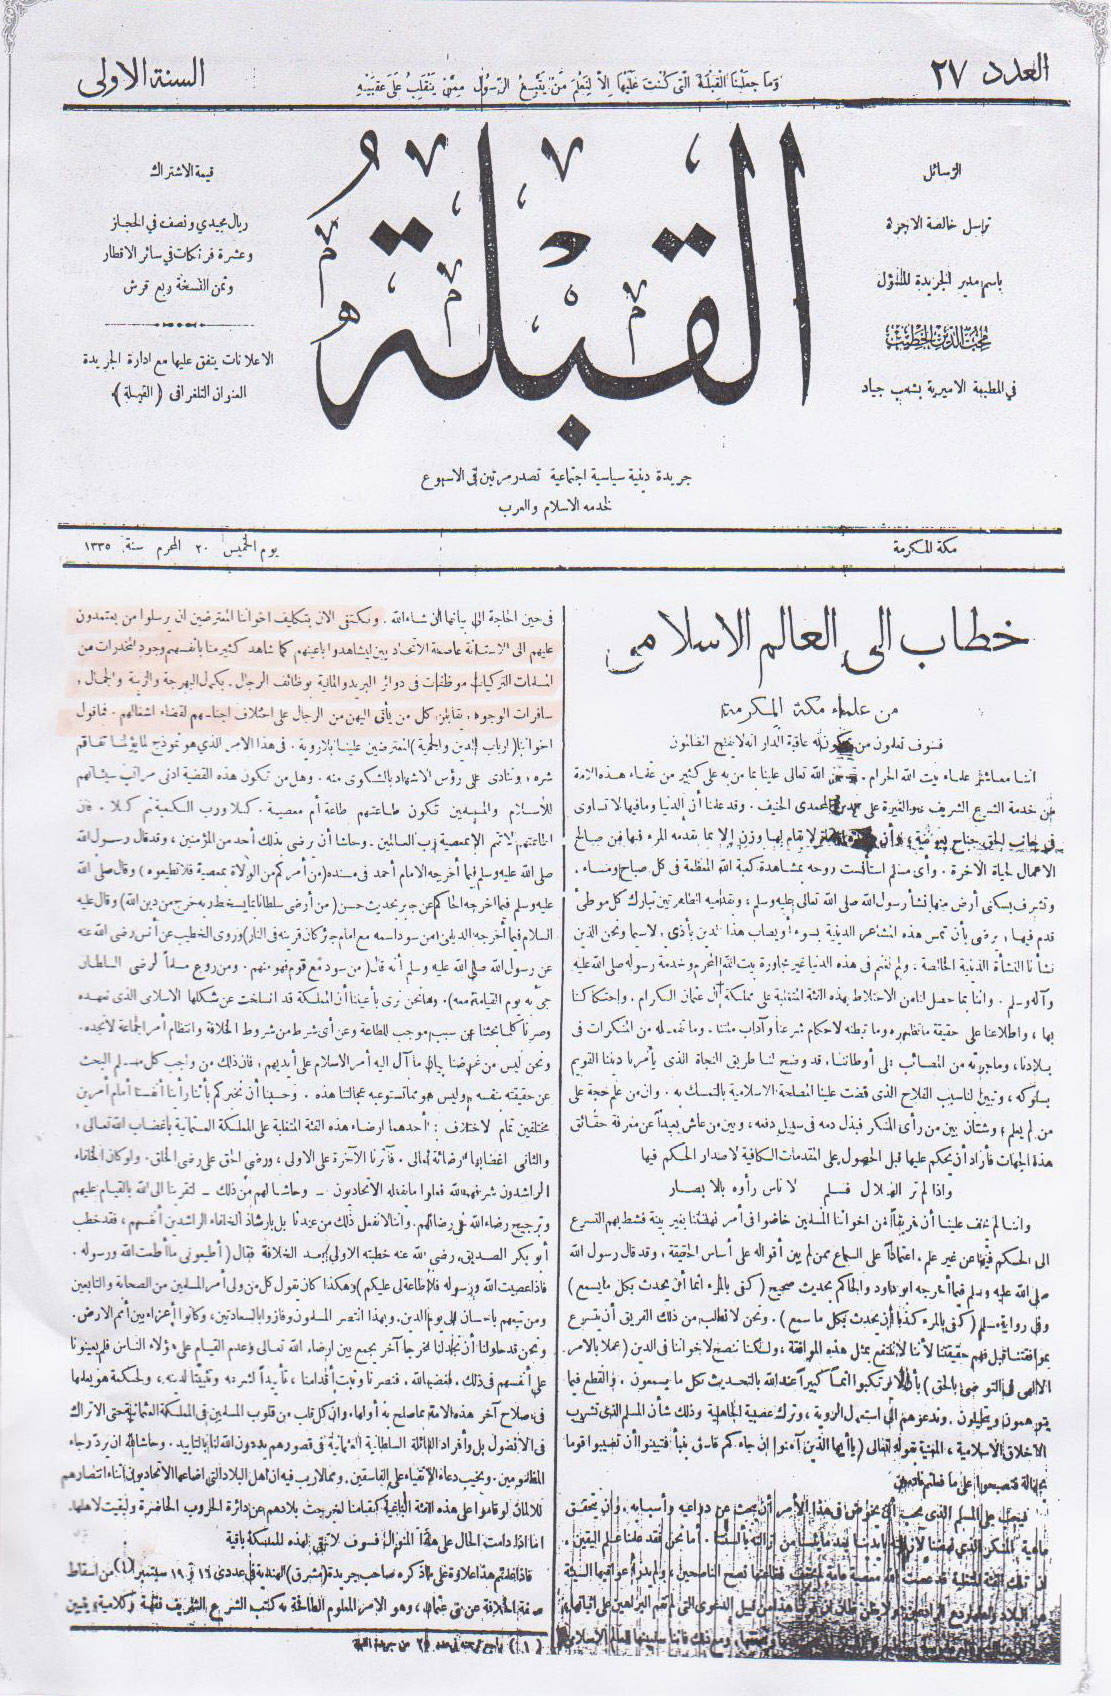 العدد ٢٧
وما جعلنا القبلة التي كنت عليها إلا لنعلم من يتبع الرسول ممن ينقلب على عقبيه
السنة الاولى
الرسائل
ترسل خالصة الاجرة
باسم مدير الجريدة المسؤول
محب الدين الخطيب
في المطبعة الاميرية بشعب جياد
القبلة
قيمة الاشتراك
ريال مجيدي ونصف في الحجاز
وعشرة فرنكات في سائر الاقطار
وثمن النسخة ربع قرش
الاعلانات يتفق عليها مع ادارة الجريدة
العنوان التلغرافى (القبلة).
جريدة دينية سياسية اجتماعية تصدر مرتين في الاسبوع
لخدمة الاسلام والعرب
مكة المكرمة
يوم الخميس ٢٠ المحرم سنة ١٣٣٥
خطاب الى العالم الاسلامى
من علماء مكة المكرمة
فسوف تعلمون من تكون له عاقبة الدار انه لا يفلح الظالمون
اننا معاشر علماء بيت الله الحرام الله تعالى علينا بما من به على كثير من علماء هذه الامة
من خدمة الشرع الشريف والغيرة على المحمدى الحنيف . وقد علمنا أن الدنيا وما فيها لا تساوى
فى جانب الحق جناح بعوضة ، وأن لا مقام لها ولا وزن إلا بما يقدمه المرء فيها من صالح
الاعمال لحياة الآخرة . وأى مسلم استأنست روحه بمشاهدة كعبة الله المعظمة فى كل صباح ومساء ،
وتشرف بسكنى أرض منها نشأ رسول الله صلى الله تعالى عليه وسلم ، وبقدميه الطاهرتين تبارك كل موطئ
قدم فيها ، يرضى بأن تمس هذه المشاعر الدينية بسوء أو يصاب هذا الدين بأذى ، لاسيما ونحن الذين
نشأنا النشأة الدينية الخالصة . ولم نغنم فى هذه الدنيا غير مجاورة بيت الله المحرم وخدمة رسوله صلى الله عليه
وآله وسلم . واننا بما حصل لنا من الاختلاط بهذه الفئة المتغلبة على مملكة آل عثمان الكرام ، واحتكاكنا
بها ، واطلاعنا على حقيقة ما تظهره وما تبطنه لاحكام شرعنا وآداب ملتنا . وما تفعله من المنكرات فى
بلادنا ، وما جرته من المصائب على أوطاننا ، قد وضح لنا طريق النجاة الذى يأمرنا ديننا القويم
بسلوكه ، وتبين لنا سبيل الفلاح الذى قضت علينا المصلحة الاسلامية بالتمسك به . وان من علم حجة على
من لم يعلم ، وشتان بين من رأى المنكر فبذل دمه فى سبيل دفعه ، وبين من عاش بعيداً عن معرفة حقائق
هذه الجهات فأراد أن يحكم عليها قبل الحصول على المقدمات الكافية لاصدار الحكم فيها
واذا لم تر الهلال فسلم لاناس رأوه بالابصار
واننا لم يخف علينا أن فريقاً من اخواننا المسلمين خاضوا فى أمر نهضتنا بغير بينة فشط بهم التسرع
الى الحكم فيها عن غير علم . اعتماداً على السماع ممن لم يبن أقواله على أساس الحقيقة ، وقد قال رسول الله
صلى الله عليه وسلم فيما أخرجه ابو داود والحاكم بحديث صحيح (كفى بالمرء اثما أن يحدث بكل ما يسمع)
وفى رواية مسلم (كفى بالمرء كذبا أن يحدث بكل ما سمع) . ونحن لا نطلب من ذلك الفريق أن يتسرع
بموافقتنا قبل فهم حقيقتنا لأننا لا ننتفع بمثل هذه الموافقة ، ولكننا ننصح لاخواننا فى الدين (عملا بالامر
الالهى فى التواصى بالحق) بأن لا يرتكبوا اثماً كبيراً عند الله بالتحديث بكل ما يسمعون . والقطع فيما
يتوهمون ويتخيلون . وندعوهم الى استعمال الروية ، وترك عصبية الجاهلية وذلك شأن المسلم الذى تشرب
الاخلاق الاسلامية ، المعنية بقوله تعالى (يا أيها الذين آمنوا إن جاءكم فاسق بنبأ فتبينوا أن تصيبوا قوما
بجهالة فتصبحوا على ما فعلتم نادمين
فيجب على المسلم الذى يحب أن يخوض فى هذا الأمر أن يبحث عن دواعيه وأسبابه . وان يتحقق
فى حين الحاجة الى بيانها ان شاء الله . ونكتفى الان بتكليف اخواننا المعترضين ان يرسلوا من يعتمدون
عليهم الى الاستانة عاصمة الاتحاديين ليشاهدوا باعينهم كما شاهد كثير منا بأنفسهم وجود المخدرات من
المسلمات التركيات موظفات فى دوائر البريد والمالية بوظائف الرجال . بكمل البهرجة والزينة والجمال ،
سافرات الوجوه ، يقابلن كل من يأتى اليهن من الرجال على اختلاف اجناسهم لقضاء اشغالهم . فما قول
اخواننا (ارباب الدين والحمية) المعترضين علينا بلا روية . فى هذا الامر الذى هو نموذج لما يؤلمنا تفاقم
شره ، وننادى على رؤس الاشهاد بالشكوى منه . وهل من تكون هذه القضية ادنى مراتب سيئاتهم
للأسلام والمسلمين تكون طاعتهم طاعة أم معصية . كلا ورب الكعبة ثم كلا . فان
اطاعتهم لا تتم الا بمعصية رب العالمين . وحاشا أن يرضى بذلك أحد من المؤمنين ، وقد قال رسول الله
صلى الله عليه وسلم فيما أخرجه الامام أحمد فى مسنده (من أمركم من الولاة بمعصية فلا تطيعوه) وقال صلى الله
عليه وسلم فيما اخرجه الحاكم عن جابر بحديث حسن (من أرضى سلطانا بما يسخط ربه خرج من دين الله) وقال عليه
السلام فيما أخرجه الديلمى (من سود اسمه مع امام جائر كان قرينه فى النار) وروى الخطيب عن أنس رضى الله عنه
عن رسول الله صلى الله عليه وسلم أنه قال (من سود مع قوم فهو منهم . ومن روع مسلماً لرضى السلطان
جىء به يوم القيامة معه) . وها نحن نرى بأعيننا أن المملكة قد انسلخت عن شكلها الاسلامى الذى نعهده
وصرنا كلما بحثنا عن سبب موجب للطاعة وعن أى شرط من شروط الخلافة وانتظام أمر الجماعة لا نجده .
ونحن ليس من غرضنا بيان ما آل اليه أمر الاسلام على أيديهم ، فان ذلك من واجب كل مسلم البحث
عن حقيقته بنفسه ، وليس هو مما تستوعبه عجالتنا هذه . وحسبنا أن نخبركم بأننا رأينا أنفسنا أمام أمرين
مختلفين تمام الاختلاف : أحدهما ارضاء هذه الفئة المتغلبة على المملكة العثمانية باغضاب الله تعالى ،
والثانى اغضابها برضائه تعالى . فآثرنا الآخرة على الاولى ، ورضى الحق على رضى الخلق . ولو كان الخلفاء
الراشدون شرفهم الله فعلوا ما يفعله الاتحاديون — وحاشا لهم من ذلك — لتقربنا الى الله بالقيام عليهم
وترجيح رضاء الله على رضائهم . واننا لا نفعل ذلك من عندنا بل بارشاد الخلفاء الراشدين أنفسهم ، فقد خطب
أبو بكر الصديق رضى الله عنه خطبته الاولى بعد الخلافة فقال (أطيعونى ما أطعت الله ورسوله .
فاذا عصيت الله ورسوله فلا طاعة لى عليكم) وهكذا كان يقول كل من ولى أمر المسلمين من الصحابة والتابعين
ومن تبعهم باحسان الى يوم الدين . وبهذا انتصر المسلمون وفازوا بالسعادتين ، وكانوا أعزاء بين أمم الارض .
ونحن قد حاولنا أن نجد لنا مخرجا آخر يجمع بين ارضاء الله تعالى وعدم القيام على هؤلاء الناس فلم يعينونا
على أنفسهم فى ذلك . فغضبنا لله . فنصرنا وثبت أقدامنا ، تأييداً لشرعه وتثبيتاً لدينه ، ولحكمة هو يعلمها
فى صلاح آخر هذه الامة بما صلح به أولها . وان كل قلب من قلوب المسلمين فى المملكة العثمانية حتى الاتراك
فى الاناضول بل وأفراد العائلة السلطانية العثمانية فى قصورهم يدعون الله لنا بالتأييد . وحاشا لله ان يرد رجاء
المظلومين . ويخيب دعاء الاتقياء على الفاسقين . ومما لا ريب فيه ان أهل البلاد التى اضاعها الاتحاديون أثناء انتصارهم
للالمان لو قاموا على هذه الفئة الباغية كقيامنا لخرجت بلادهم عن دائرة الحروب الحاضرة ولبقيت لاهلها
اما اذا دامت الحال على هذا المنوال فسوف لا تبقى لهذه المملكة باقية
فاذا علم هذا علاوة على ما ذكره صاحب جريدة (مشرق) الهندية فى عددى ١٢ و ١٩ سبتمبر (١) من اسقاط
صفة الخلافة عن بنى عثمان ، وهو الامر المعلوم الطافحة به كتب الشرع الشريف فقهية وكلامية ويقين